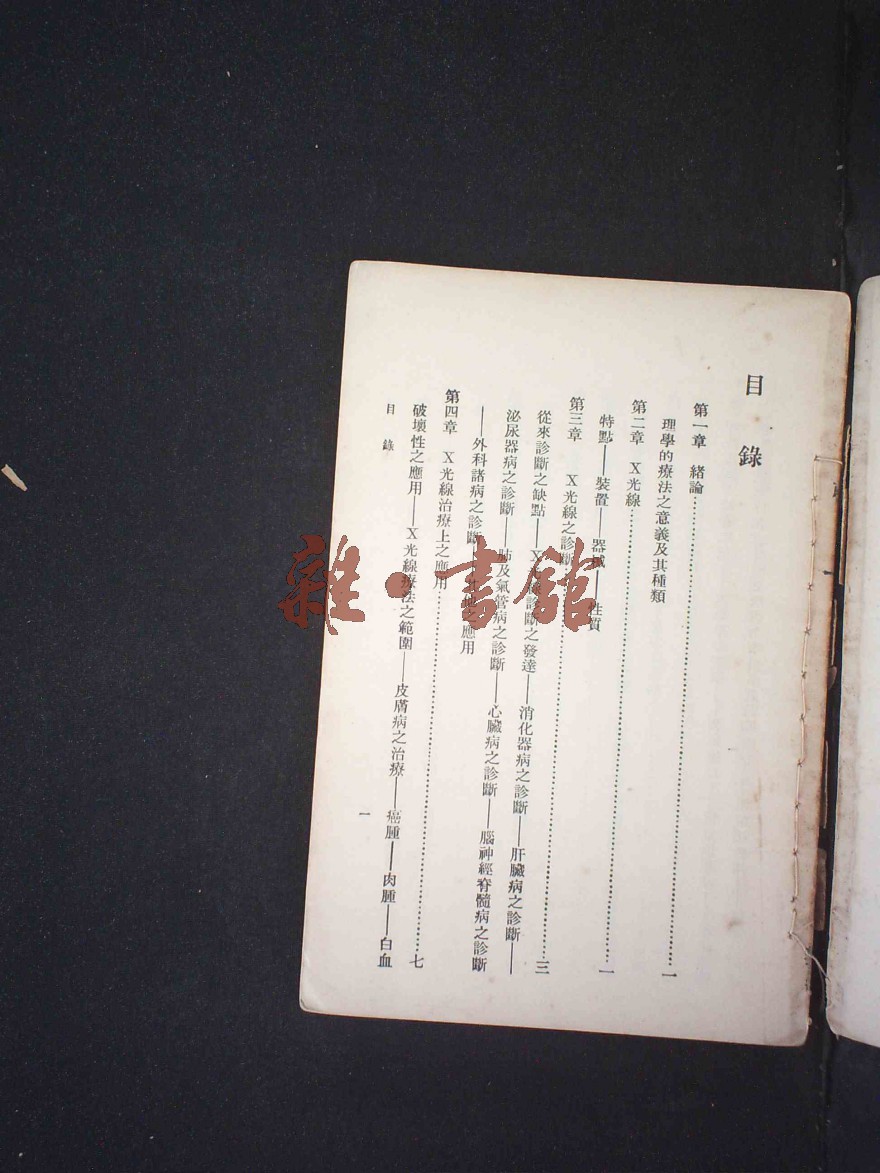 目錄
第一章 緒論……一
理學的療法之意義及其種類
第二章 X光線……一
特點——裝置——器械——性質
第三章 X光線之診斷……三
從來診斷之缺點——X光線診斷之發達——消化器病之診斷——肝臟病之診斷——
泌尿器病之診斷——肺及氣管病之診斷——心臟病之診斷——腦神經脊髓病之診斷
——外科諸病之診斷 之應用
第四章 X光線治療上之應用……七
破壞性之應用——X光線療法之範圍——皮膚病之治療——癌腫——肉腫——白血
目錄
一
雜·書館